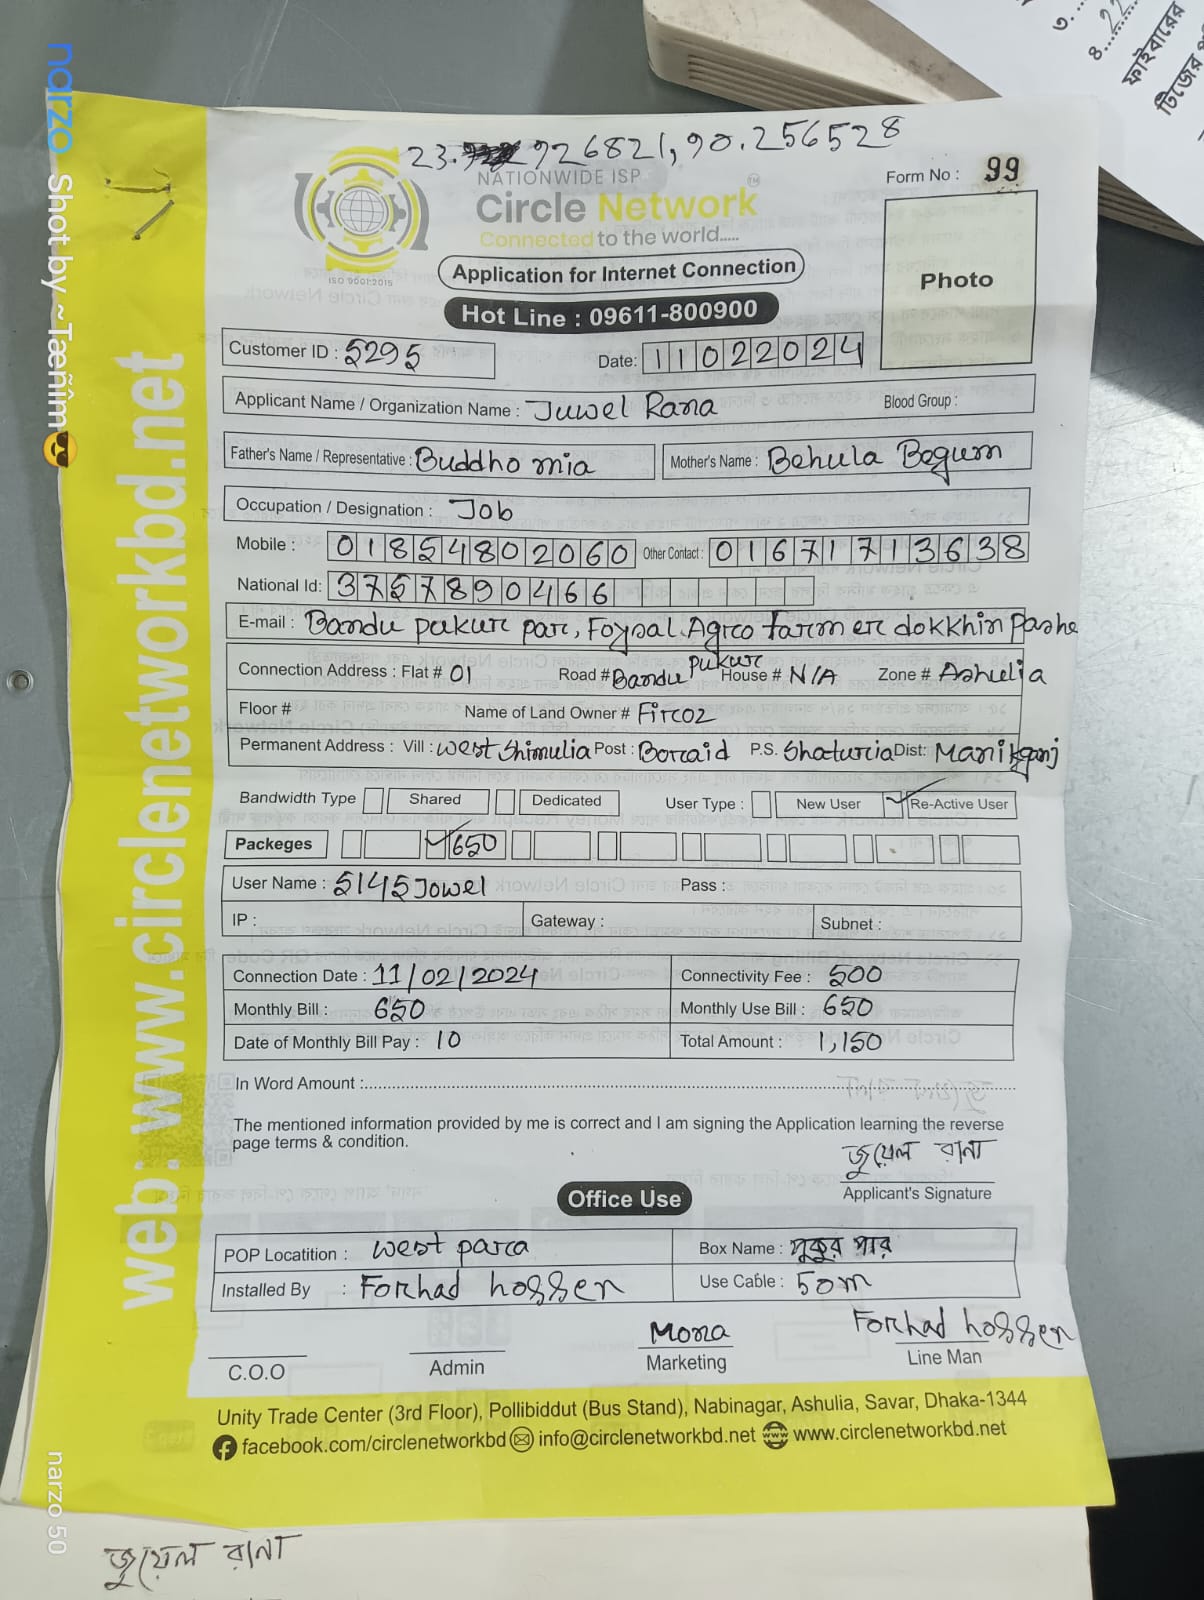 23.926821, 90.256528
NATIONWIDE ISP
Form No : 99
Circle Network
TM
Connected to the world.....
ISO 9001:2015
Application for Internet Connection
Photo
Hot Line : 09611-800900
Customer ID : 5295
Date: 11022024
Applicant Name / Organization Name : Juwel Rana
Blood Group :
Father's Name / Representative : Buddho mia
Mother's Name : Behula Begum
Occupation / Designation : Job
Mobile : 01854802060 Other Contact : 01671713638
National Id: 3757890466
E-mail : Bandu pukur par, Foysal Agro farm er dokkhin Pashe
Connection Address : Flat # 01 Road # Bandu pukur House # N/A Zone # Ashulia
Floor # Name of Land Owner # Firoz
Permanent Address : Vill : west Shimulia Post : Borraid P.S. Shaturia Dist: Manikganj
Bandwidth Type Shared Dedicated User Type : New User Re-Active User
Packeges 650
User Name : 5145Jowel Pass :
IP : Gateway : Subnet :
Connection Date : 11/02/2024 Connectivity Fee : 500
Monthly Bill : 650 Monthly Use Bill : 650
Date of Monthly Bill Pay : 10 Total Amount : 1,150
In Word Amount :
The mentioned information provided by me is correct and I am signing the Application learning the reverse
page terms & condition.
জুয়েল রানা
Applicant's Signature
Office Use
POP Locatition : west para Box Name : পুকুর পার
Installed By : Forhad hossen Use Cable : 50m
C.O.O
Admin
Mona
Marketing
Forhad hossen
Line Man
Unity Trade Center (3rd Floor), Pollibiddut (Bus Stand), Nabinagar, Ashulia, Savar, Dhaka-1344
facebook.com/circlenetworkbd info@circlenetworkbd.net www.circlenetworkbd.net
web: www.circlenetworkbd.net
জুয়েল রানা
narzo Shot by ~Tæñîm😎
narzo 50
৩.
৪. 22
ফাইবারের